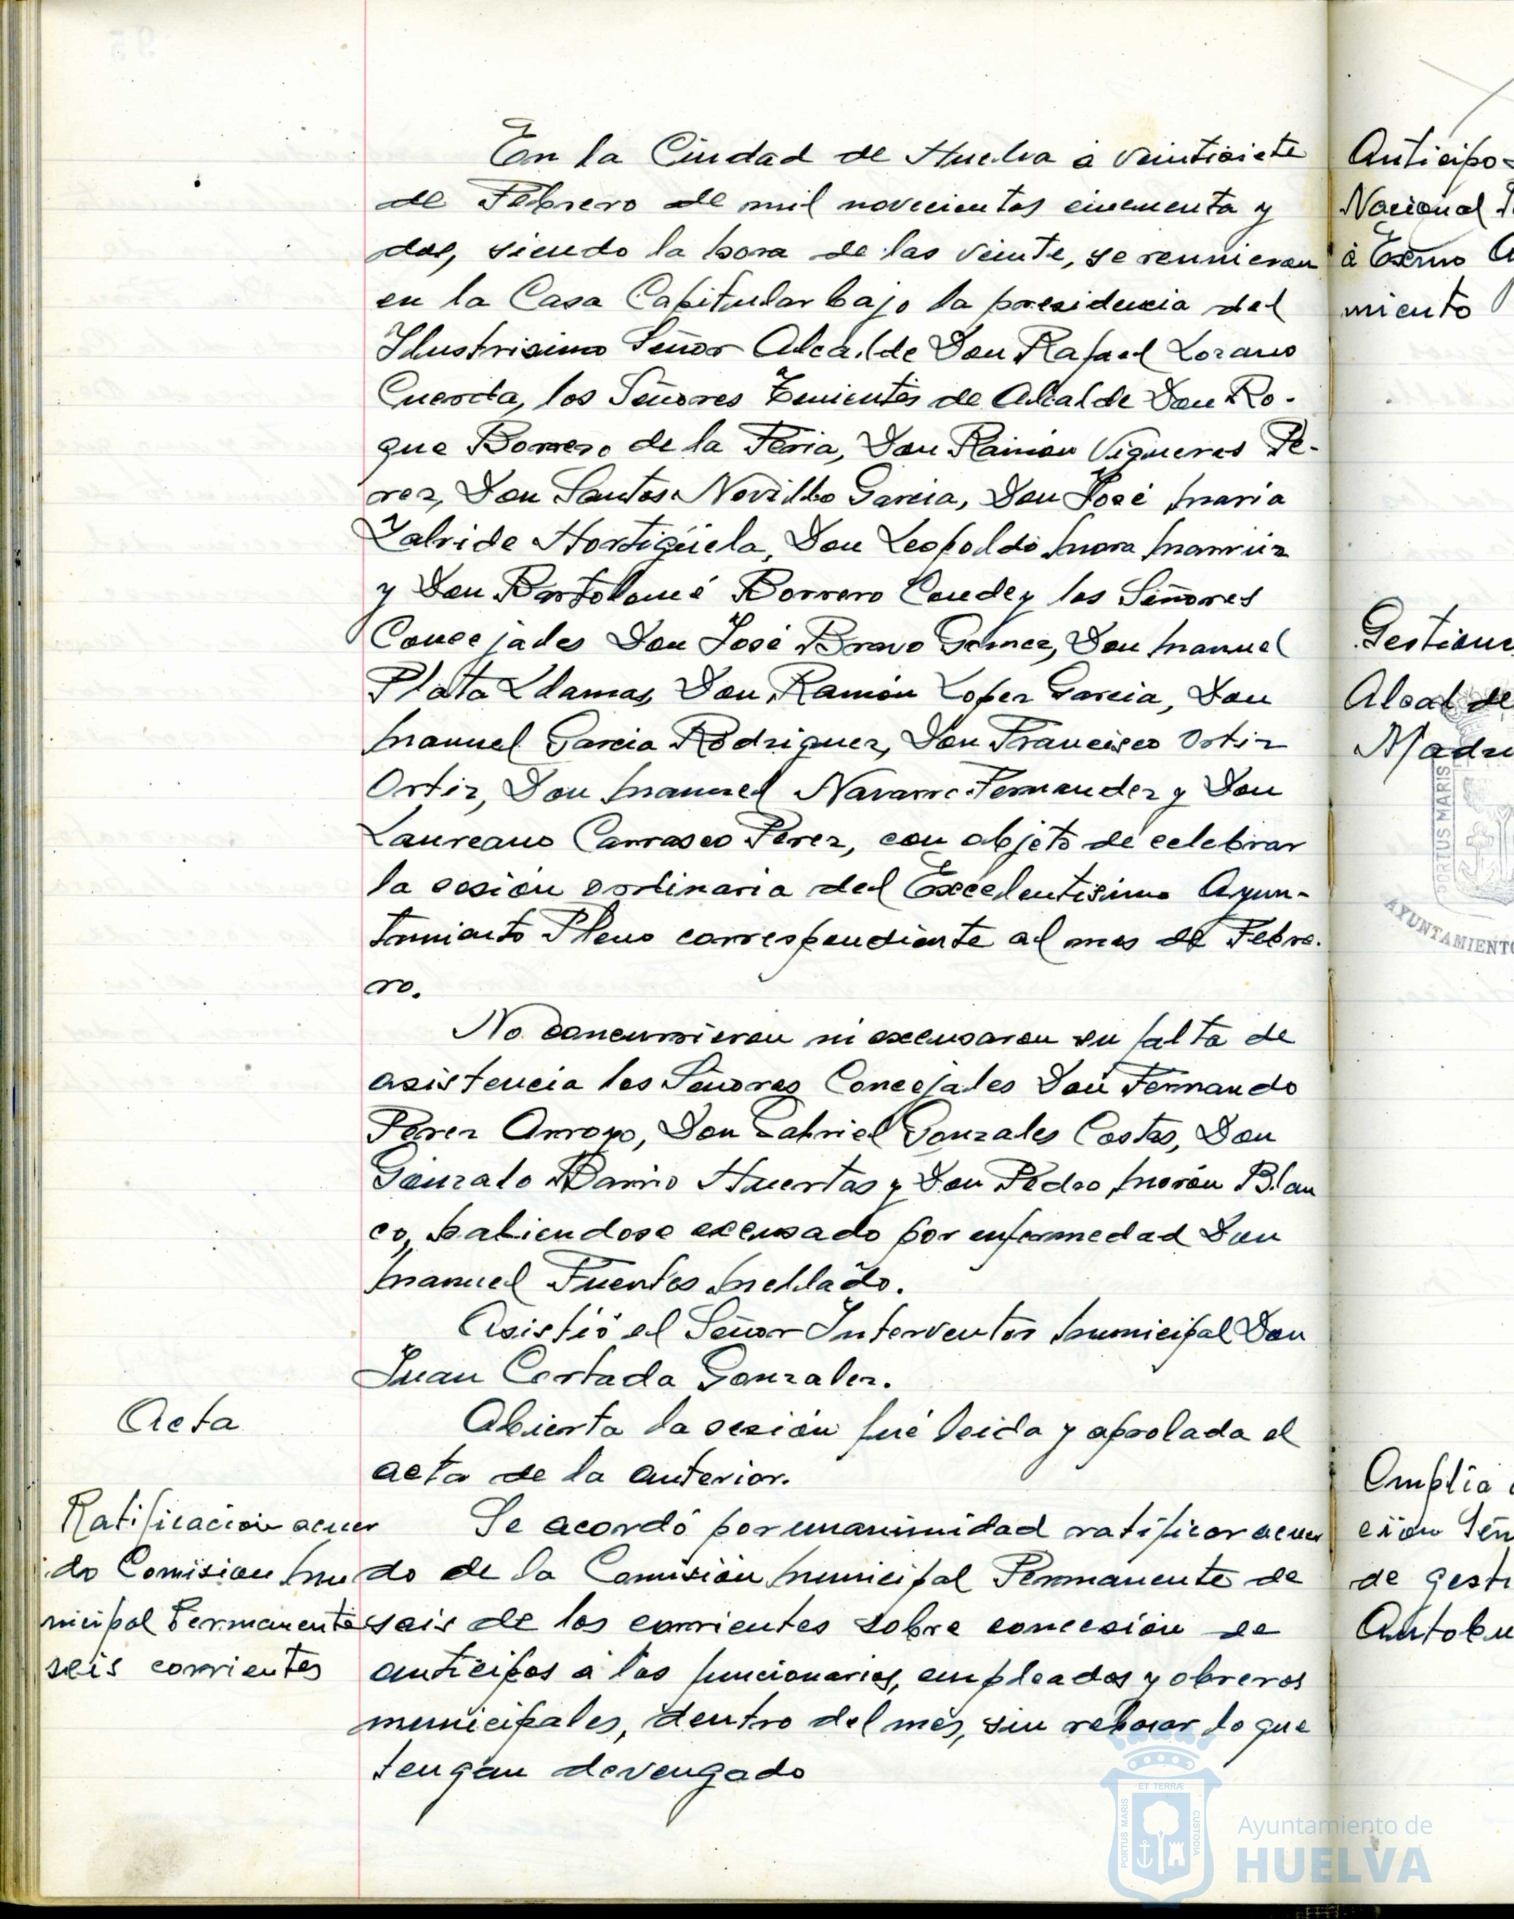 En la Ciudad de Huelva á veintisiete
de Febrero de mil novecientos cincuenta y
dos, siendo la hora de las veinte, se reunieron
en la Casa Capitular bajo la presidencia del
Ilustrisimo Señor Alcalde Don Rafael Lozano
Cuerda, los Señores Tenientes de Alcalde Don Ro-
que Borrero de la Feria, Don Ramón Vigueras Pe-
rez, Don Santos Novillo Garcia, Don José Maria
Zalvide Hortigüela, Don Leopoldo Mora
y Don Bartolomé Borrero Conde y los Señores
Concejales Don José Bravo Gomez, Don Manuel
Plata Llamas, Don Ramón Lopez Garcia, Don
Manuel Garcia Rodriguez, Don Francisco Ortiz
Ortiz, Don Manuel Navarro Fernandez y Don
Laureano Carrasco Perez, con objeto de celebrar
la sesión ordinaria del Excelentisimo Ayun-
tamiento Pleno correspondiente al mes de Febre-
ro.
No concurrieron ni excusaron su falta de
asistencia los Señores Concejales Don Fernando
Perez Arroyo, Don Gabriel Gonzales Costas, Don
Gonzalo Barrio Huertas y Don Pedro Morón Blan
co, habiendose excusado por enfermedad Don
Manuel Fuentes Mellado.
Asistió el Señor Interventor Municipal Don
Juan Cortada Gonzalez.
Acta
Abierta la sesión fué leida y aprobada el
acta de la anterior.
Ratificacion acuer
do Comision Mu
nicipal Permanente
seis corrientes
Se acordó por unanimidad ratificar acuer
do de la Comisión Municipal Permanente de
seis de los corrientes sobre concesión de
anticipos á los funcionarios, empleados y obreros
municipales, dentro del mes, sin rebasar lo que
tengan devengado
Anticipo
Nacional
á Excmo A
miento
Gestione
Alcalde
Madri
PORTUS MARIS
AYUNTAMIENTO
Amplia
cion Señ
de gesti
Autobu
ET TERRÆ
PORTUS MARIS
CUSTODIA
Ayuntamiento de
HUELVA